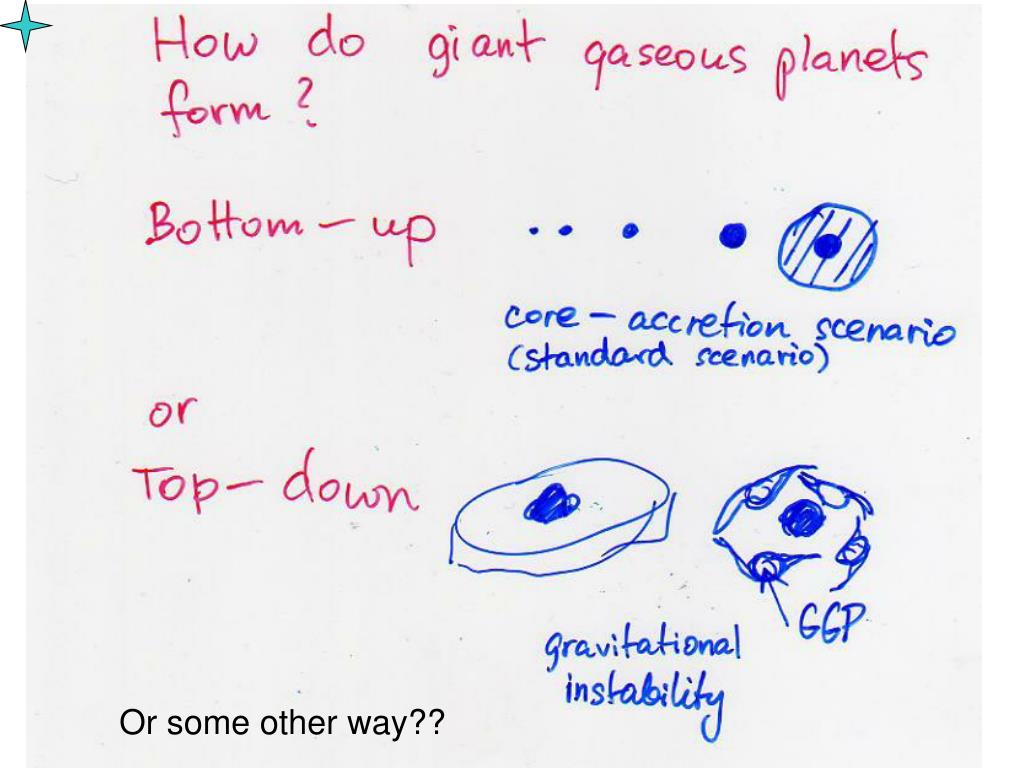 How do giant gaseous planets
form?
Bottom-up
core-accretion scenario
(standard scenario)
or
Top-down
GGP
gravitational
instability
Or some other way??